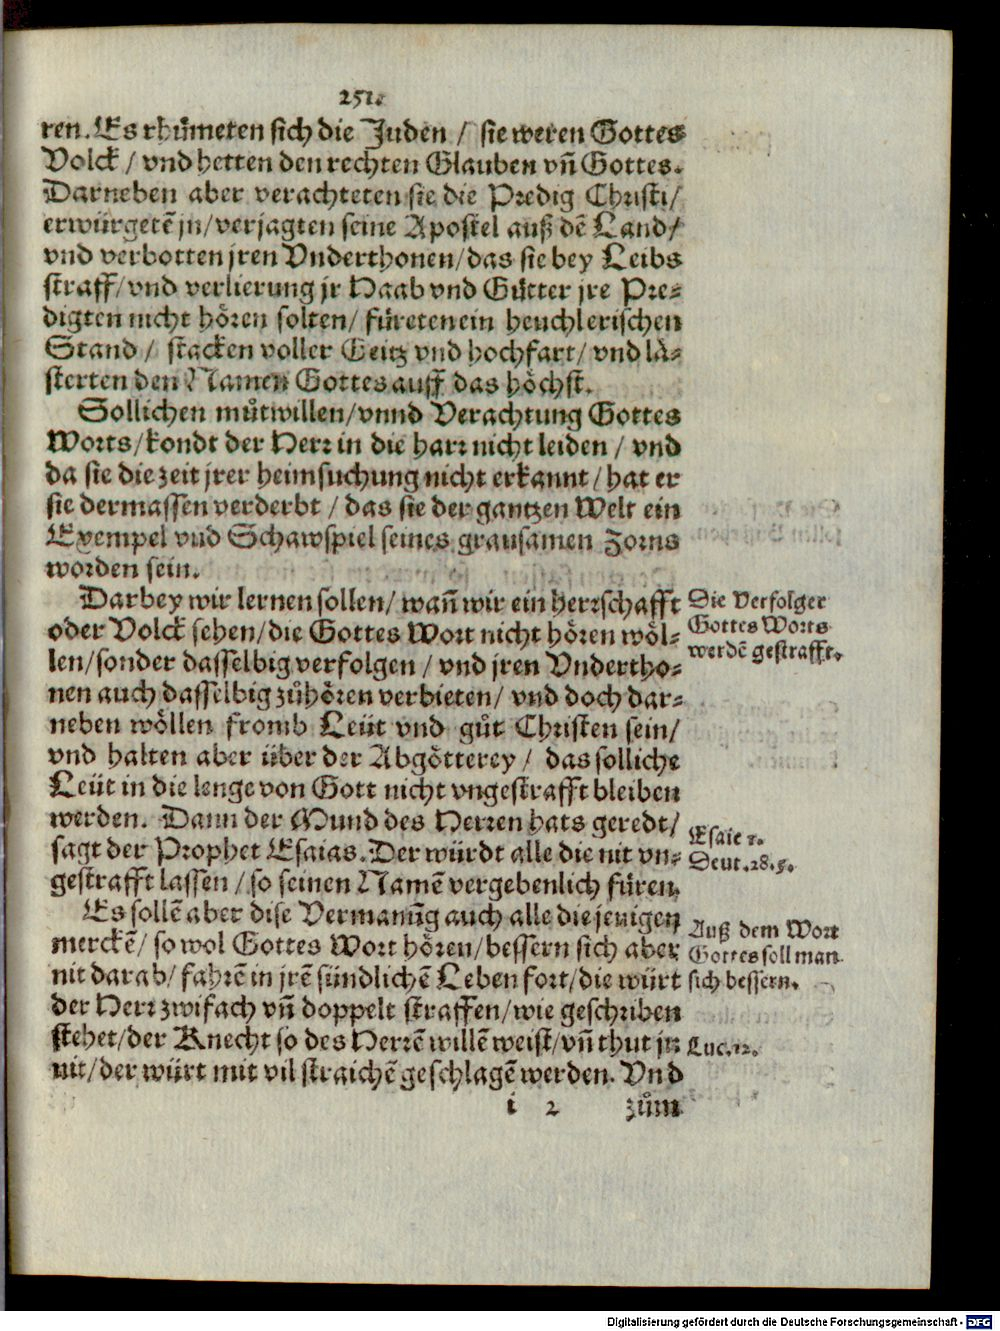 251.
ren. Es rhuͤmeten sich die Juden / sie weren Gottes
Volck / vnd hetten den rechten Glauben vñ Gottes.
Darneben aber verachteten sie die Predig Christi/
erwürgetẽ jn/verjagten seine Apostel auß dẽ Land/
vnd verbotten jren Vnderthonen/das sie bey Leibs
straff/vnd verlierung jr Haab vnd Guͤtter jre Pre-
digten nicht hoͤren solten/ fuͤreten ein heuchlerischen
Stand / stacken voller Geitz vnd hochfart/ vnd laͤ-
sterten den Namen Gottes auff das hoͤchst.
Sollichen muͦtwillen/vnnd Verachtung Gottes
Worts/kondt der Herr in die harr nicht leiden / vnd
da sie die zeit jrer heimsuchung nicht erkannt/hat er
sie dermassen verderbt / das sie der gantzen Welt ein
Exempel vnd Schawspiel seines grausamen Zorns
worden sein.
Darbey wir lernen sollen/ wañ wir ein herrschafft
oder Volck sehen/die Gottes Wort nicht hoͤren woͤl-
len/sonder dasselbig verfolgen / vnd jren Vndertho-
nen auch dasselbig zuͦhoͤren verbieten/ vnd doch dar-
neben woͤllen fromb Leüt vnd guͦt Christen sein/
vnd halten aber über der Abgoͤtterey / das solliche
Leüt in die lenge von Gott nicht vngestrafft bleiben
werden. Dann der Mund des Herren hats geredt/
sagt der Prophet Esaias. Der würdt alle die nit vn-
gestrafft lassen / so seinen Namẽ vergebenlich fuͤren.
Es sollẽ aber dise Vermanũg auch alle die jenigen
merckẽ/ so wol Gottes Wort hoͤren/bessern sich aber
nit darab/ fahrẽ in jrẽ sündlichẽ Leben fort/die würt
der Herr zwifach vñ doppelt straffen/wie geschriben
stehet/der Knecht so des Herrẽ willẽ weist/vñ thut jn
nit/der würt mit vil straichẽ geschlagẽ werden. Vnd
i 2 zuͦm
Die Verfolger
Gottes Worts
werdẽ gestrafft.
Esaie 1.
Deut.28.5.
Auß dem Wort
Gottes soll man
sich bessern.
Luc.12.
Digitalisierung gefördert durch die Deutsche Forschungsgemeinschaft - DFG